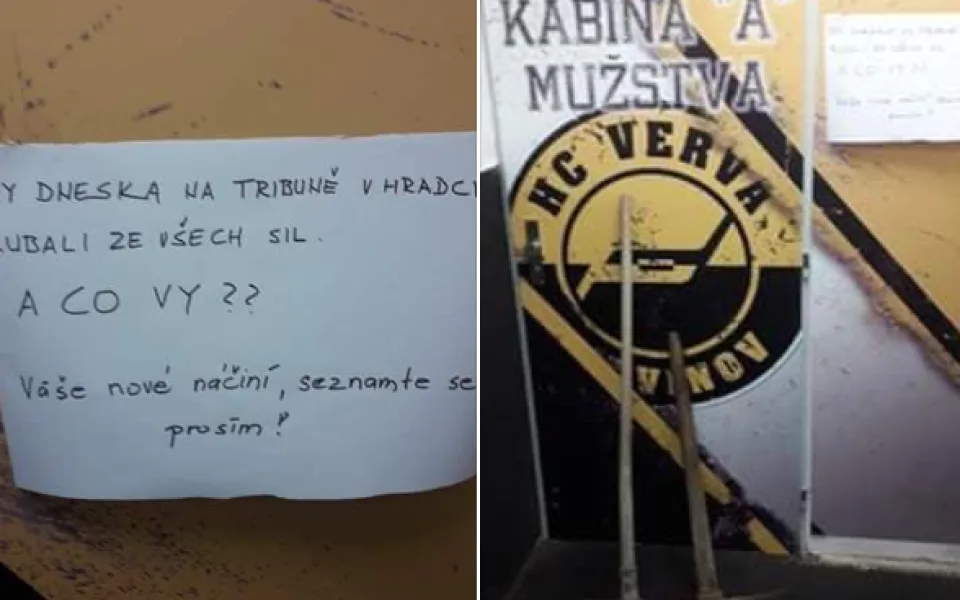 Y DNESKA NA TRIBUNĚ V HRADCI
UBALI ZE VŠECH SIL.
A CO VY ??
Váše nové náčiní, seznamte se
prosím!
KABINA "A"
MUŽSTVA
HC VERVA
VÍNOV
A CO VY ??